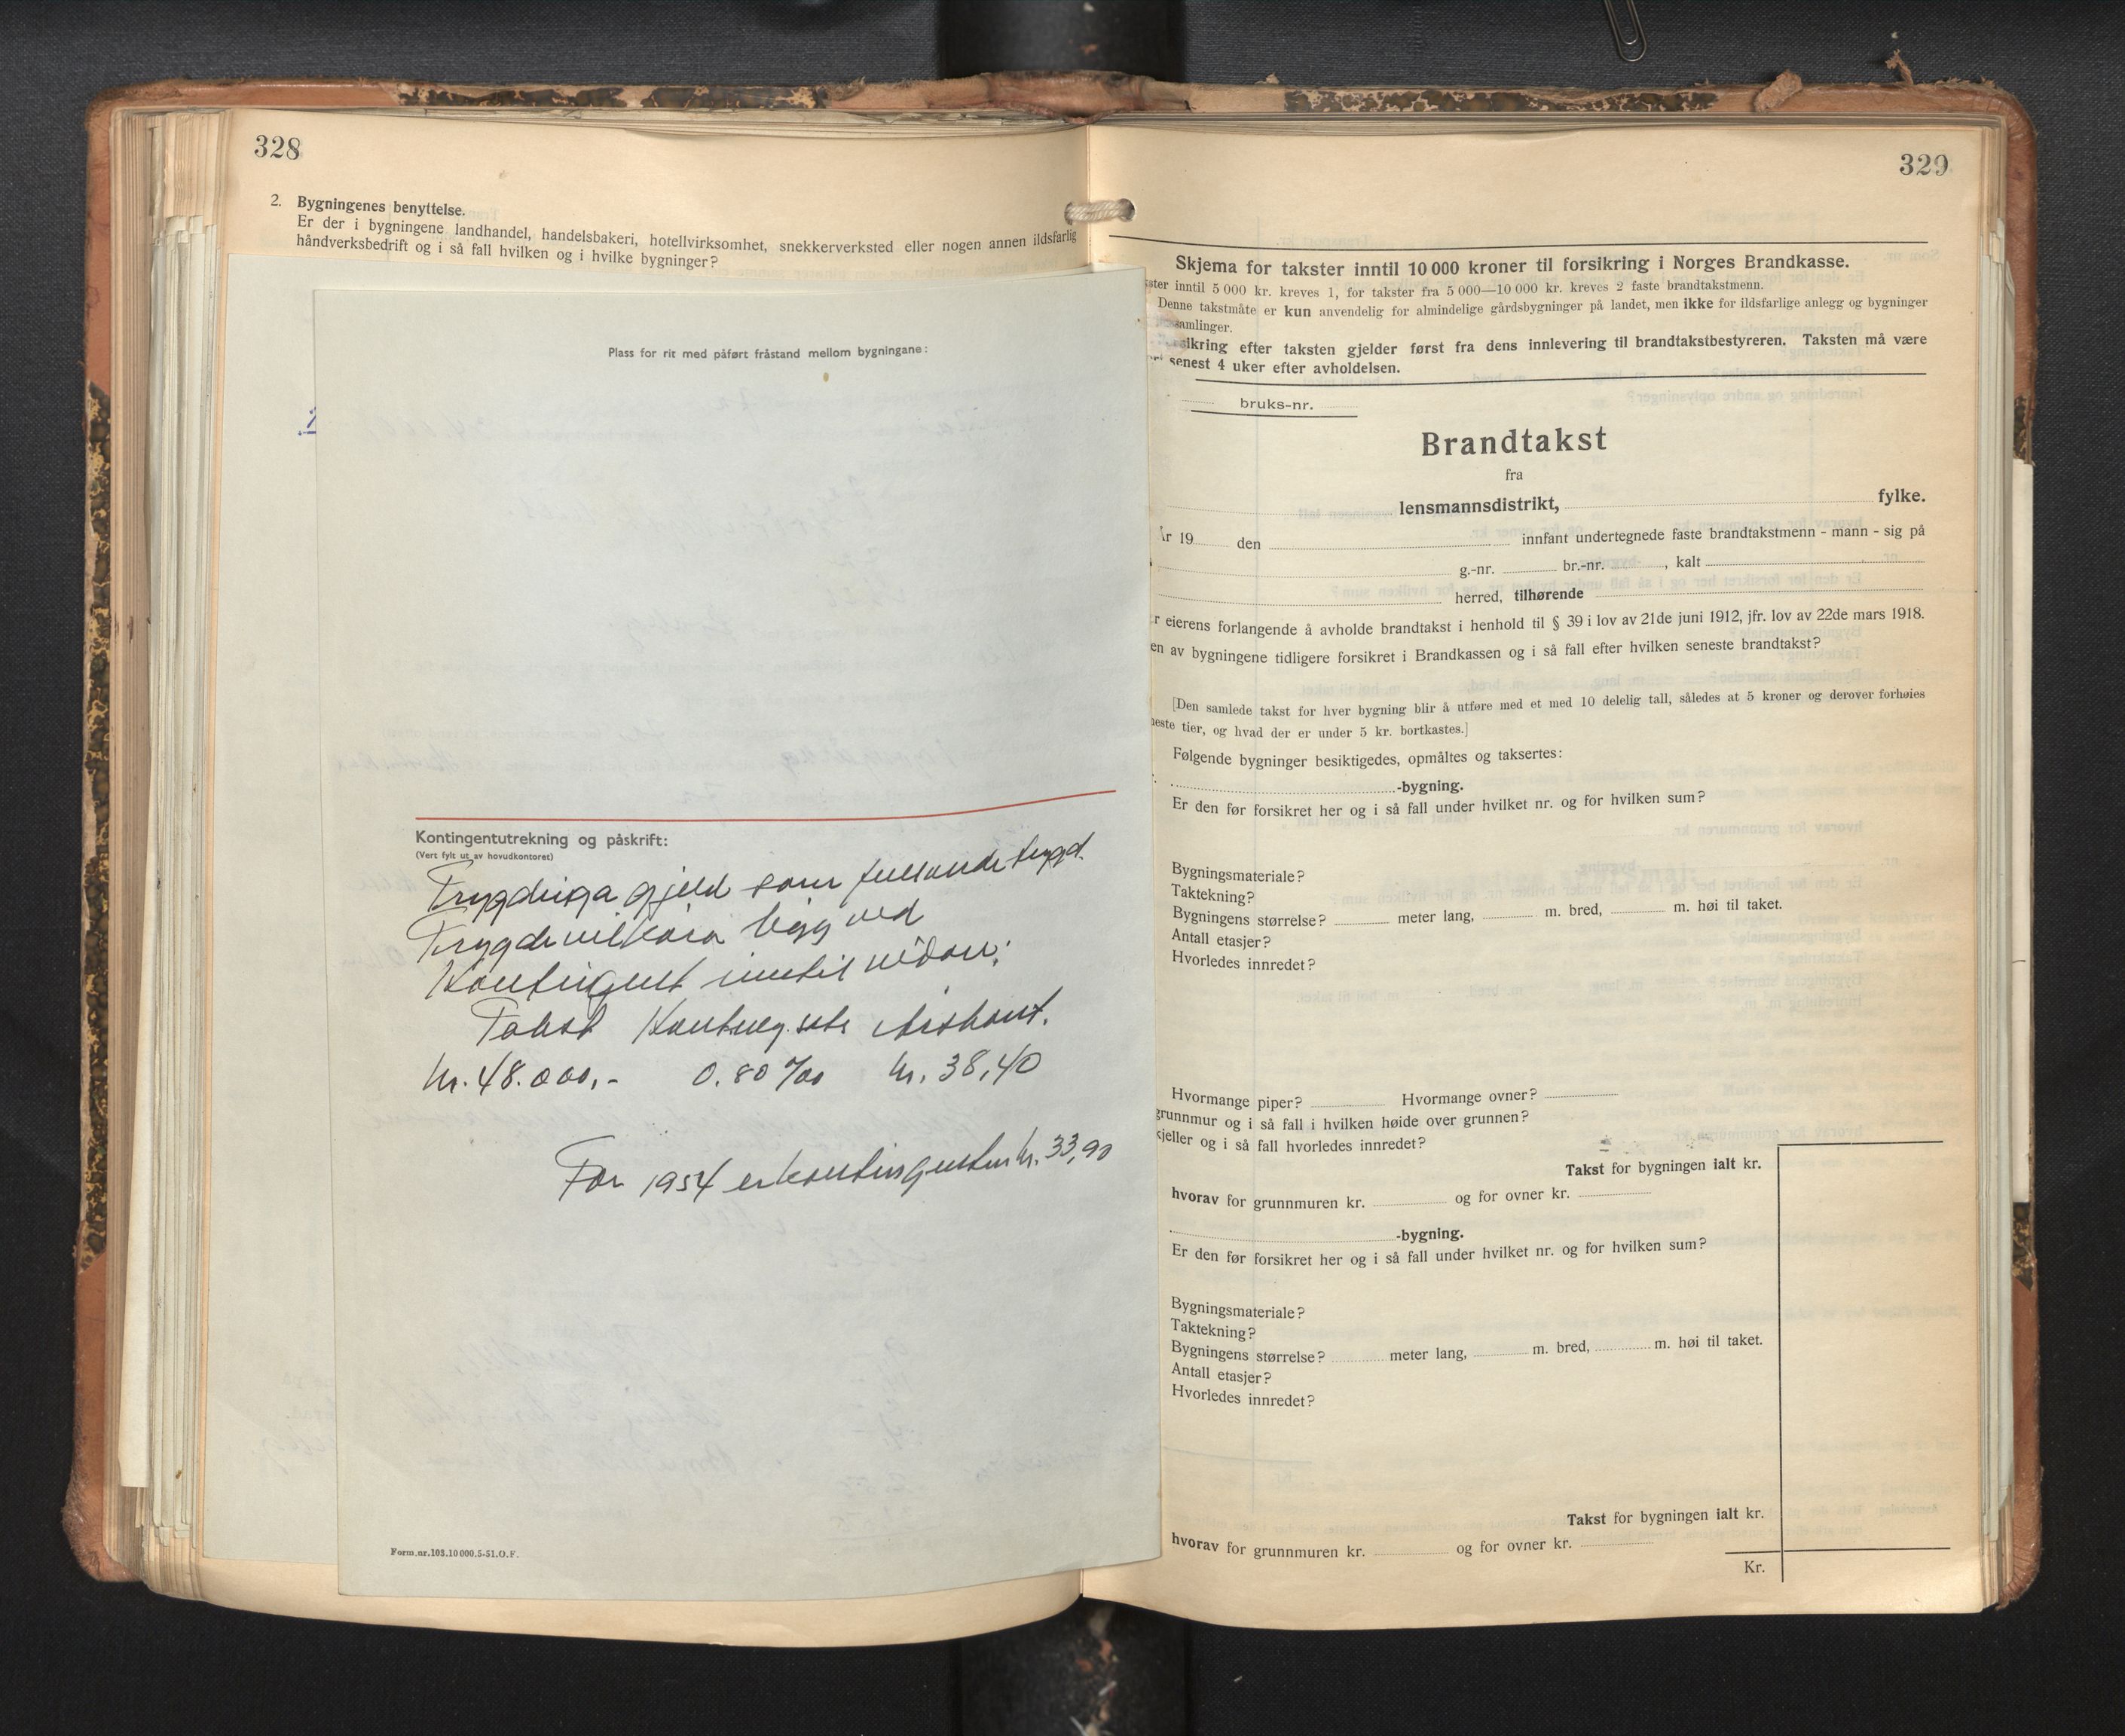 328
2. Bygningenes benyttelse.
Er der i bygningene landhandel, handelsbakeri, hotellvirksomhet, snekkerverksted eller nogen annen ildsfarlig
håndverksbedrift og i så fall hvilken og i hvilke bygninger?
Plass for rit med påført fråstand mellom bygningane:
Kontingentutrekning og påskrift:
(Vert fylt ut av hovudkontoret)
Trygdinga gjeld som fullande trygd.
Trygdevilkåra ligg ved
Kontingent inntil vidare:
Takst Kontneg.sats Årskont.
kr. 48.000,- 0.80 ‰ kr. 38,40
For 1954 er kontingenten kr. 33,90
Form.nr.103.10000.5-51.O.F.
329
Skjema for takster inntil 10 000 kroner til forsikring i Norges Brandkasse.
ster inntil 5 000 kr. kreves 1, for takster fra 5 000—10 000 kr. kreves 2 faste brandtakstmenn.
Denne takstmåte er kun anvendelig for almindelige gårdsbygninger på landet, men ikke for ildsfarlige anlegg og bygninger
samlinger.
sikring efter taksten gjelder først fra dens innlevering til brandtakstbestyreren. Taksten må være
senest 4 uker efter avholdelsen.
bruks-nr.
Brandtakst
fra
lensmannsdistrikt, fylke.
År 19 den innfant undertegnede faste brandtakstmenn - mann - sig på
g.-nr. br.-nr. , kalt
herred, tilhørende
r eierens forlangende å avholde brandtakst i henhold til § 39 i lov av 21de juni 1912, jfr. lov av 22de mars 1918.
en av bygningene tidligere forsikret i Brandkassen og i så fall efter hvilken seneste brandtakst?
[Den samlede takst for hver bygning blir å utføre med et med 10 delelig tall, således at 5 kroner og derover forhøies
neste tier, og hvad der er under 5 kr. bortkastes.]
Følgende bygninger besiktigedes, opmåltes og taksertes:
-bygning.
Er den før forsikret her og i så fall under hvilket nr. og for hvilken sum?
Bygningsmateriale?
Taktekning?
Bygningens størrelse? meter lang, m. bred, m. høi til taket.
Antall etasjer?
Hvorledes innredet?
Hvormange piper? Hvormange ovner?
grunnmur og i så fall i hvilken høide over grunnen?
kjeller og i så fall hvorledes innredet?
Takst for bygningen ialt kr.
hvorav for grunnmuren kr. og for ovner kr.
-bygning.
Er den før forsikret her og i så fall under hvilket nr. og for hvilken sum?
Bygningsmateriale?
Taktekning?
Bygningens størrelse? meter lang, m. bred, m. høi til taket.
Antall etasjer?
Hvorledes innredet?
Takst for bygningen ialt kr.
hvorav for grunnmuren kr. og for ovner kr.
Kr.